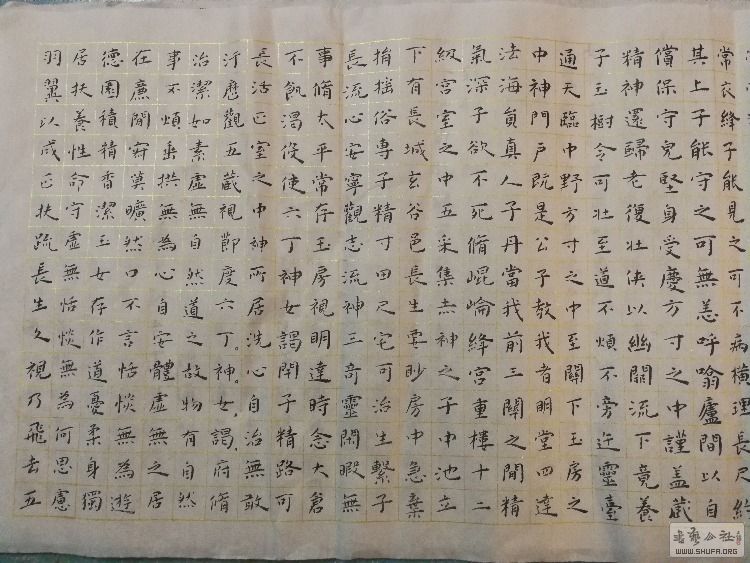 常衣絳子能見之可不病橫理長尺約
其上子能守之可無恙呼噏廬間以自
償保守皃堅身受慶方寸之中謹盖藏
精神還歸老復壮俠以幽闕流下竟養
子玉樹令可壮至道不煩不旁迕靈臺
通天臨中野方寸之中至關下玉房之
中神門戶既是公子教我者明堂四達
法海員真人子丹當我前三關之閒精
氣深子欲不死脩崐崘絳宮重樓十二
級宮室之中五采集赤神之子中池立
下有長城玄谷邑長生要眇房中急棄
捐搖俗專子精寸田尺宅可治生繫子
長流心安寧觀志流神三奇靈閑暇無
事脩太平常存玉房視明達時念大倉
不飢渴役使六丁神女謁閉子精路可
長活正室之中神所居洗心自治無敢
汙歷觀五藏視節度六丁神女謁府脩
治潔如素虛無自然道之故物有自然
事不煩垂拱無為心自安體虛無之居
在廉閒寂莫曠然口不言恬惔無為遊
德園積精香潔玉女存作道憂柔身獨
居扶養性命守虛無恬惔無為何思慮
羽翼以成正扶疏長生久視乃飛去五
WWW.SHUFA.ORG